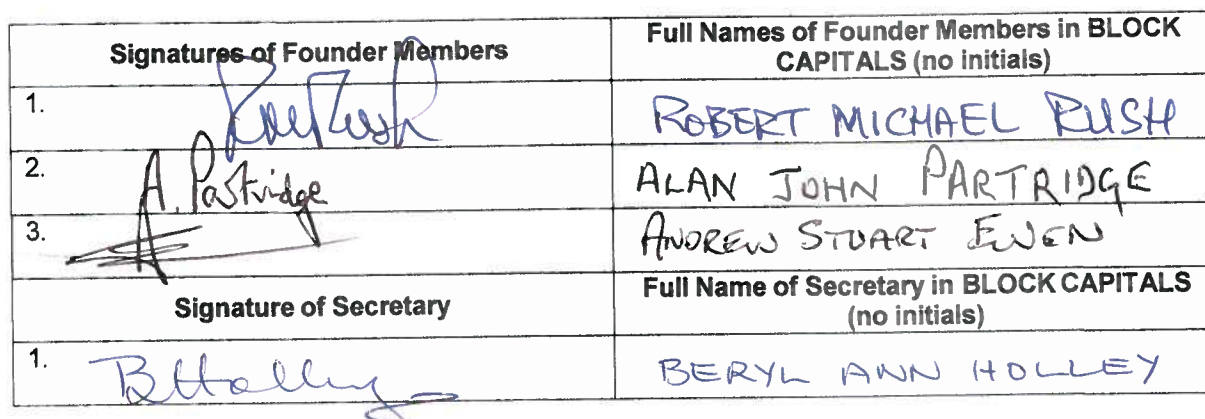 Signatures of Founder Members
Full Names of Founder Members in BLOCK
CAPITALS (no initials)
1.
ROBERT MICHAEL RUSH
2. A. Partridge
ALAN JOHN PARTRIDGE
3.
ANDREW STUART EWEN
Signature of Secretary
Full Name of Secretary in BLOCK CAPITALS
(no initials)
1. B Holley
BERYL ANN HOLLEY